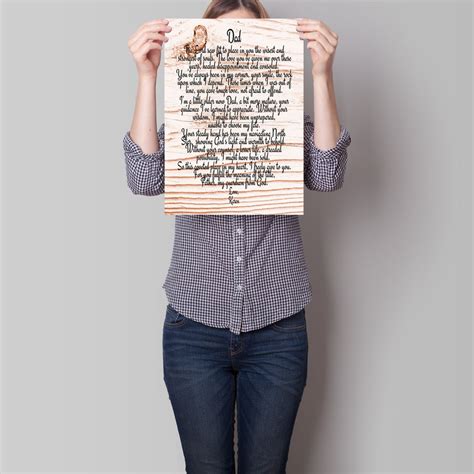 Dad
The Lord saw fit to place in you the wisest and
strongest of souls. The love you've given me over these
years, healed disappointment and consoled.
You've always been in my corner, your smile, the rock
upon which I depend. Those times when I was out of
line, you gave tough love, not afraid to offend.
I'm a little older now Dad, a bit more mature, your
guidance I've learned to appreciate. Without your
wisdom, I might have been unprepared,
unable to choose my fate.
Your steady hand has been my North
showing God's light and warmth to behold.
Without your counsel, a lesser life, a dreaded
possibility, I might have been sold.
So this candid place in my heart, I freely give to you.
For you fulfill the meaning of the title,
Father, my from God.
Love,
Karen